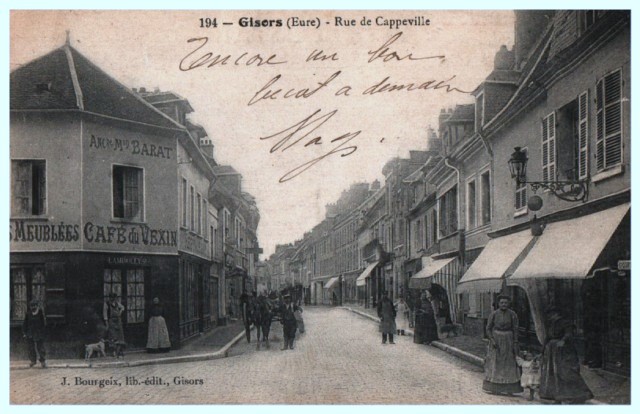 194 – Gisors (Eure) - Rue de Cappeville
Encore un bon
bécot a demain
ANC. MON BARAT
S MEUBLÉES
CAFÉ DU VEXIN
J. Bourgeix, lib.-édit., Gisors